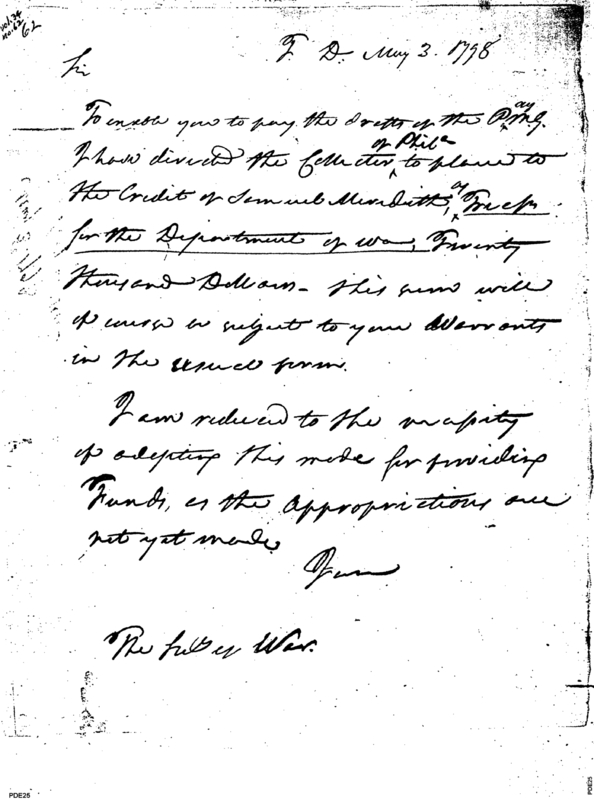 vol. 24
no. 62
62
T D. May 3. 1798
Sir
To enable you to pay the drafts of the P ay M G.
I have directed the Collector of Phila to place to
the Credit of Samuel Meredith, as Treasr
for the Department of War, Twenty
thousand Dollars - this sum will
of course be subject to your Warrants
in the usual form.
I am reduced to the necessity
of adopting this mode for providing
Funds, as the Appropriations are
not yet made
I am
The Secy of War.
PDE25
PDE25